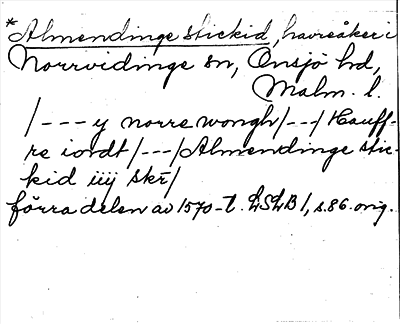 *Almendinge stickid, havreåker i
Norrvidinge sn, Onsjö hd,
Malm. l.
/--- y norre wongh/---/ Hauff-
re iordt/---/Almendinge stic-
kid iiij skr/
förra delen av 1570-t. LSLB 1, s. 86. orig.